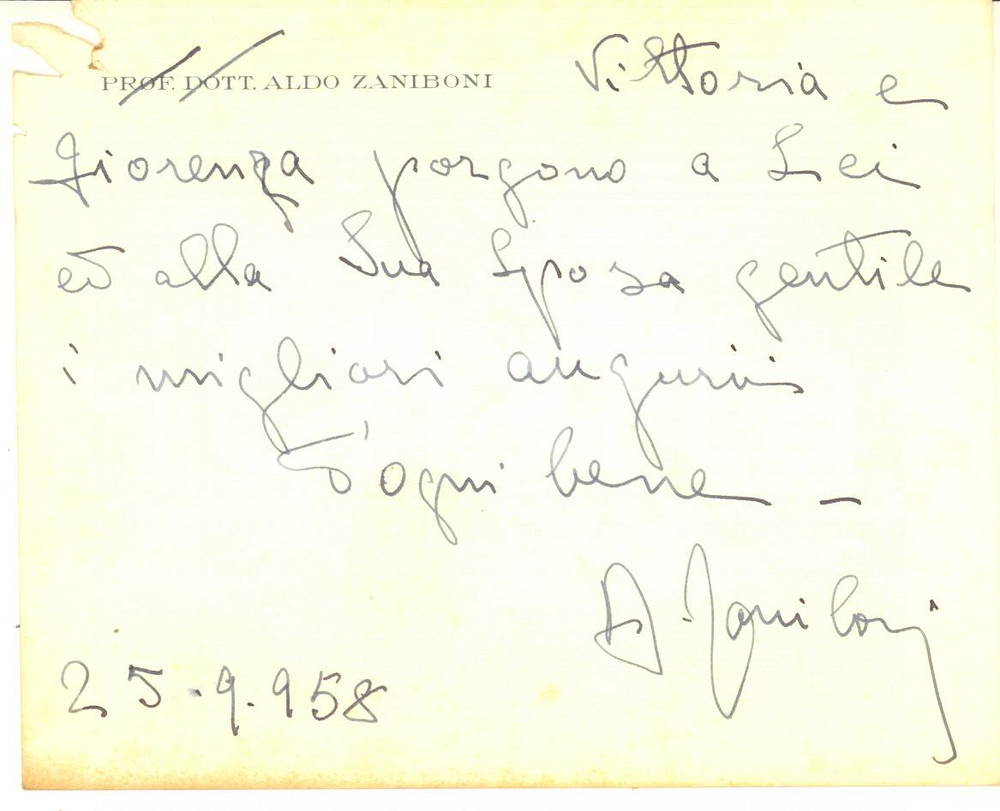 PROF. DOTT. ALDO ZANIBONI
Vittoria e
Fiorenza porgono a Lei
ed alla Sua Sposa gentile
i migliori auguri
d'ogni bene –
A. Zaniboni
25.9.958